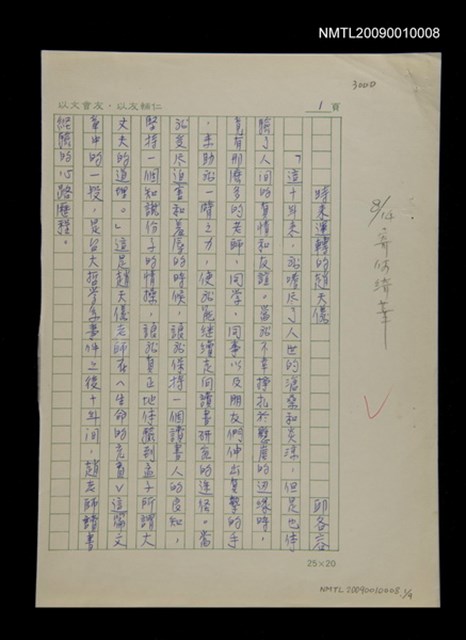 NMTL20090010008
3000
以文會友，以友輔仁
1頁
8/14寄何綺華
時來運轉的趙天儀
邱各容
「這十年來，我嚐盡了人世的滄桑和炎涼，但是也体
驗了人間的眞情和友誼。當我不幸掙扎於懸崖的邊緣時，
竟有那麼多的老師、同學、同事以及朋友們伸出眞摯的手
，來助我一臂之力，使我能繼續走向讀書研究的途徑。當
我受盡迫害和羞辱的時候，讓我保持一個讀書人的良知，
堅持一個知識份子的情操，讓我眞正地体驗到孟子所謂大
丈夫的道理。」這是趙天儀老師在〈生命的充實〉這篇文
章中的一段，是台大哲學系事件之後十年間，趙老師讀書
經驗的心路歷程。
25×20
NMTL20090010008 1/9